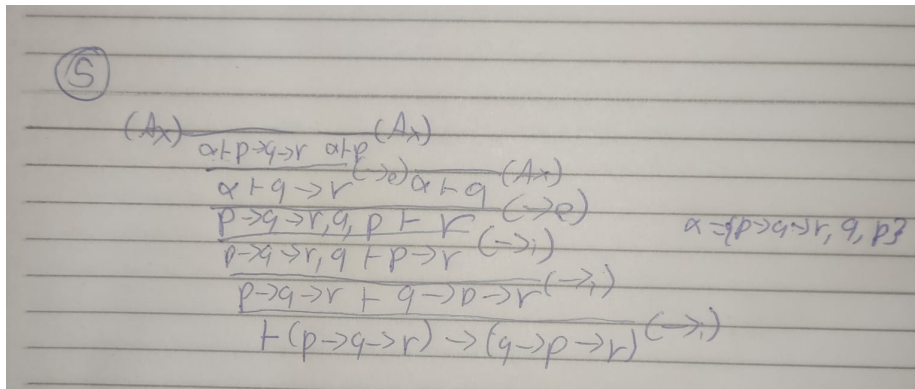 5
(Ax) (Ax)
α ⊢ p→q→r α ⊢ p
α ⊢ q→r (→e) α ⊢ q (Ax)
p→q→r, q, p ⊢ r (→e) α = {p→q→r, q, p}
p→q→r, q ⊢ p→r (→i)
p→q→r ⊢ q→p→r (→i)
⊢ (p→q→r) → (q→p→r) (→i)